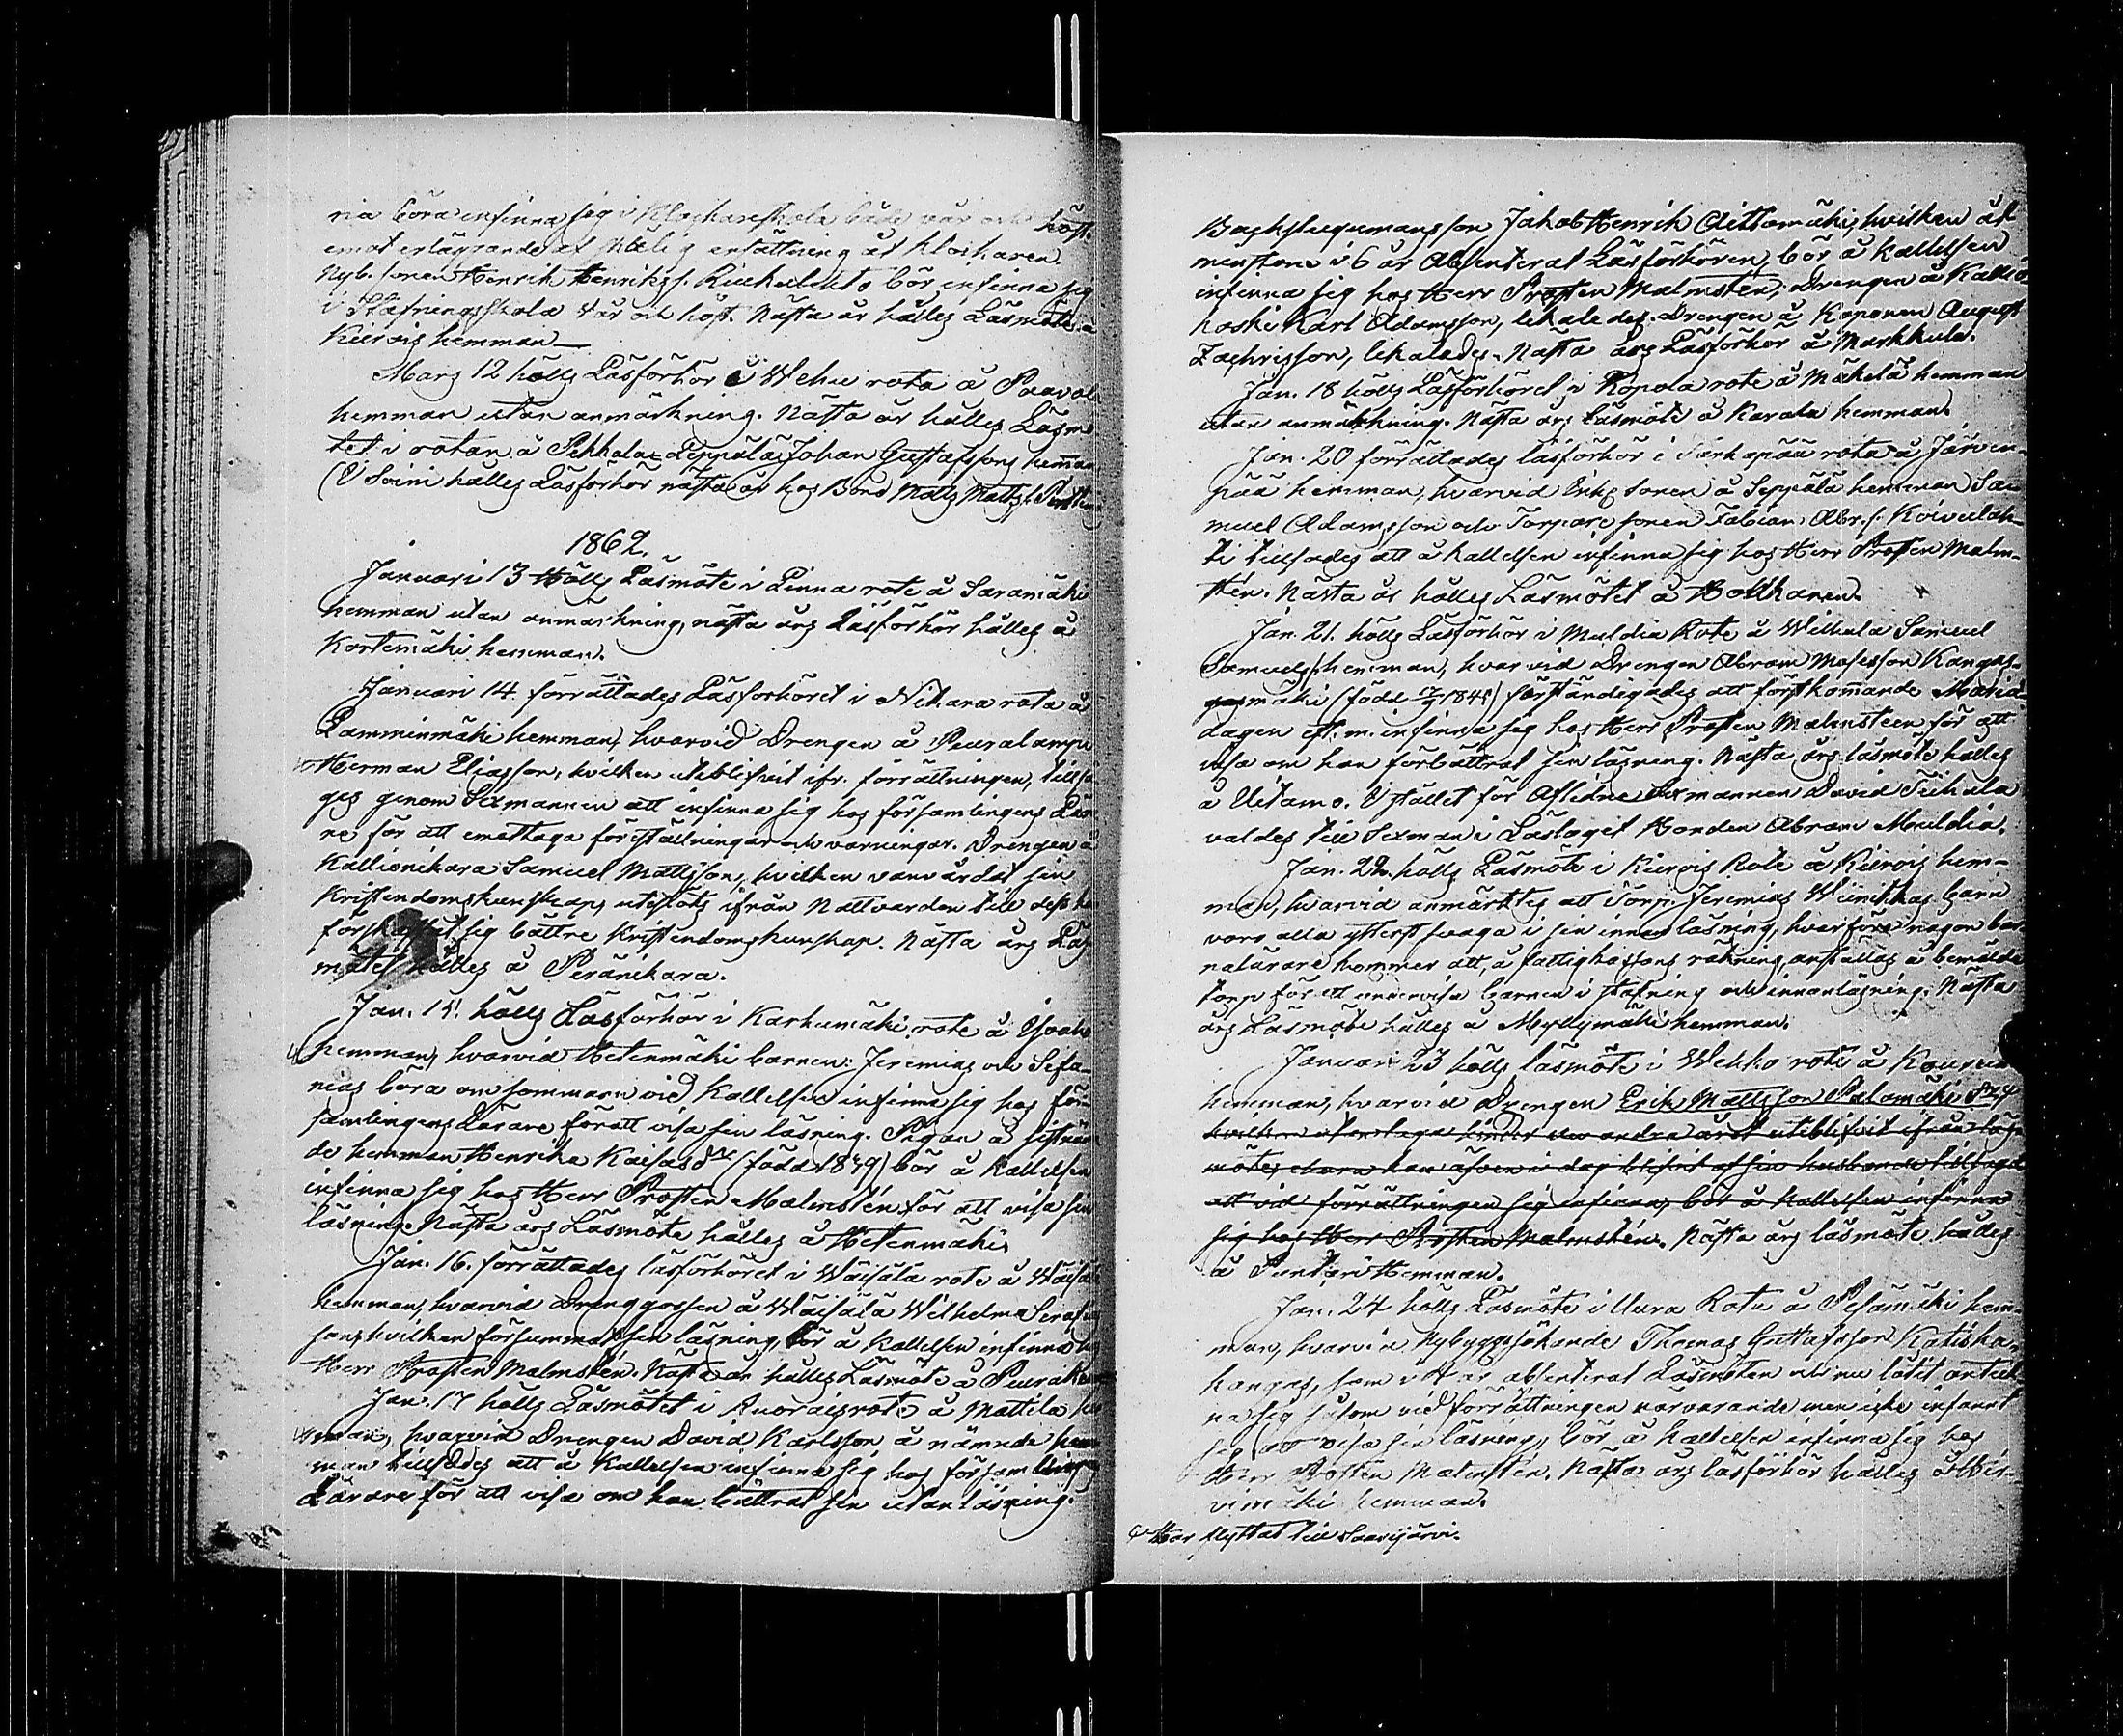 ria böra infinna sig i Klockareskola både vår och höst.
emot erläggande af skälig ersättning åt Klockaren.
Nyb. sonen Henrik Henrikss. bör infinna sig
i Stafningsskola vår och höst. Nästa år hålles Läsmöte å
Kiervis hemman—
Mars 12 hölls Läsförhör å Wehu rota å Paavol
hemman utan anmärkning. Nästa år hålles Läsmö
tet i rotan å Pekkala Leppälä Johan Gustafssons hemman
(I Soini hålles Läsförhör nästa år hos Bond Matts Matts s. Perttun
1862.
Januari 13 Hölls Läsmöte i Linna rote å Saramäki
hemman utan anmärkning, nästa års Läsförhör hålles å
Kortemäki hemman.
Januari 14 förrättades Läsförhöret i Nikara rota å
Lamminmäki hemman, hvarvid Drengen å Peuralampi
Herman Eliasson, hvilken uteblifvit ifr. förrättningen, tillsä
ges genom Sexmannen att infinna sig hos församlingens Lära
re för att emottaga föreställningar och varningar. Drengen å
Kallionikara Samuel Mattsson, hvilken vanvårdat sin
Kristendomskunskap, utestötes ifrån Nattvarden till dess han
förskaffat sig bättre Kristendomskunskap. Nästa års Läs
mötet hålles å Peränikara.
Jan. 15. hölls Läsförhör i Karhumäki rote å
hemman, hvarvid Hetenmäki barnen: Jeremias och Sefa-
nias böra om sommarn vid Kallelsen infinna sig hos för-
samlingens Lärare för att visa sin läsning. Pigan å sistnäm
de hemman Henrika Kaisasdr (född 1849) bör å Kallelsen
infinna sig hos Herr Prosten Malmstén för att visa sin
läsning. Nästa års Läsmöte hålles å Hetenmäki.
Jan. 16. förrättades läsförhöret i Wäisälä rote å Wäisälä
hemman, hvarvid Drenggossen å Wäisälä Wilhelm Serafia
son, hvilken försummat sin läsning, bör å Kallelsen infinna sig
Herr Prosten Malmstén. Nästa år hålles Läsmöte å
Jan. 17 hölls Läsmötet i rote å Mattila hem
man, hvarvid Drengen David Karlsson å nämnde hem
man tillsades att å Kallelsen infinna sig hos församlings
Lärare för att visa om han bättrat sin utanläsning.
Backstugumansson Jakob Henrik Aittomäki, hvilken åt
minstone i 6 år absenterat Läsförhören, bör å kallelsen
infinna sig hos Herr Prosten Malmstén; Drengen å Kallio
koski Karl Adamsson, likaledes. Drengen å Koponen August
Zachrisson, likaledes. Nästa års Läsförhör å Markkula.
Jan. 18 hölls Läsförhöret i Ropola rote å Mäkelä hemman
utan anmärkning. Nästa års Läsmöte å Karala hemman.
Jan. 20 förrättades läsförhör i rota å Järvin-
pää hemman, hvarvid Inh. sonen å Seppälä hemman Sa-
muel Adamsson och Torpare sonen Fabian Abr.s. Koivulah-
ti tillsades att å kallelsen infinna sig hos Herr Prosten Malm-
stén. Nästa år hålles Läsmötet å
Jan. 21. hölls Läsförhör i Muldia Rote å Wilkula Samuel
Samuelss. hemman, hvarvid Drengen Abram Mosesson Kangas-
mäki (född 1845) förständigades att förstkommande Marie
dagen eft. m. infinna sig hos Herr Prosten Malmsteen för att
visa om han förbättrat sin läsning. Nästa års läsmöte hålles
å Uitamo. I stället för Aflidne Sexmannen David
valdes till Sexman i Läslaget Bonden Abram Muldia.
Jan. 22. hölls Läsmöte i Kiervis Rote å Kiervis hem-
man, hvarvid anmärktes att Torp. Jeremias Wiinikkas barn
voro alla ytterst svaga i sin innanläsning, hvarföre någon bar
nalärare kommer att, å fattigkassans räkning, anställas å bemälde
torp för att undervisa barnen i stafning och innanläsning. Nästa
års Läsmöte hålles å Myllymäki hemman.
Januari 23 hölls läsmöte i Wehko rote å
hemman, hvarvid Drengen Erik Mattsson Palomäki
hvilken utan laga hinder nu andra året uteblifvit ifrån läs
möte, ehuru han äfven i dag blifvit af sin husbonde tillsagd
att vid förrättningen sig infinna, bör å kallelsen infinna
sig hos Herr Prosten Malmstén. Nästa års läsmöte hålles
å hemman.
Jan. 24 hölls Läsmöte i Uura Rote å Pesämäki hem-
man, hvarvid Nybyggessökande Thomas Gustafsson Katiska-
kangas, som i år absenterat Läsmöten och nu låtit anteck
na sig såsom vid förrättningen närvarande men icke infunnit
sig att visa sin läsning, bör å kallelsen infinna sig hos
Herr Prosten Malmstén. Nästa års läsförhör hålles å Hir-
vimäki hemman.
Har flyttat till Saarijärvi.